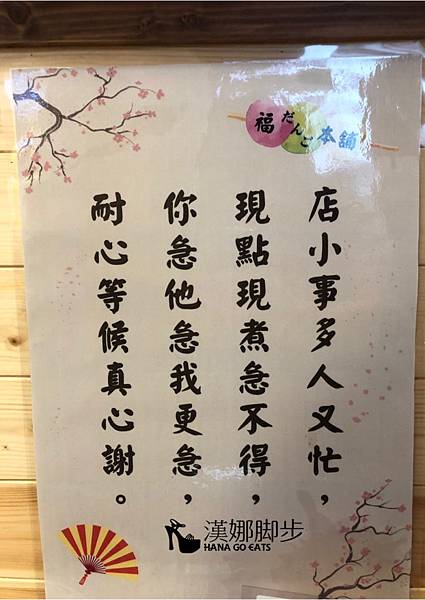 福だんご本舖
店小事多人又忙，
現點現煮急不得，
你急他急我更急，
耐心等候真心謝。
漢娜脚步
HANA GO EATS